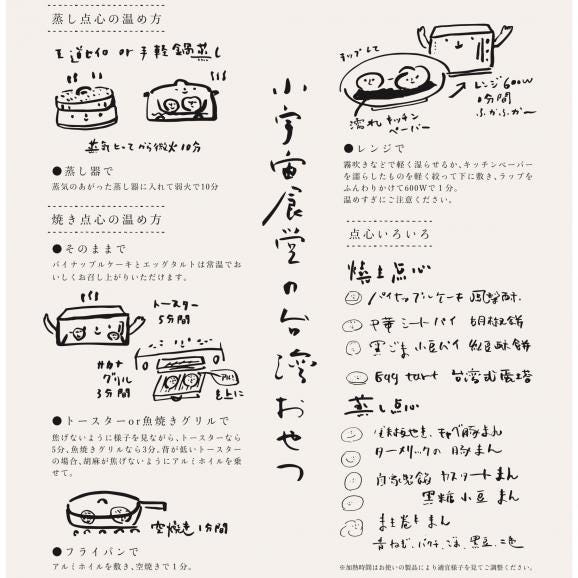 蒸し点心の温め方
王道セイロ or 手軽鍋蒸し
蒸気たってから弱火10分
●蒸し器で
蒸気のあがった蒸し器に入れて弱火で10分
焼き点心の温め方
●そのままで
パイナップルケーキとエッグタルトは常温でお
いしくお召し上がりいただけます。
トースター
5分間
サカナ
グリル
3分間
を上に
●トースターor魚焼きグリルで
焦げないように様子を見ながら、トースターなら
5分、魚焼きグリルなら3分、背が低いトースター
の場合、胡麻が焦げないようにアルミホイルを乗
せて。
空焼き1分間
●フライパンで
アルミホイルを敷き、空焼きで1分。
小宇宙食堂の台湾おやつ
ラップして
レンジ600W
1分間
ふかふか〜
濡れキッチン
ペーパー
●レンジで
霧吹きなどで軽く湿らせるか、キッチンペーパー
を濡らしたものを軽く絞って下に敷き、ラップを
ふんわりかけて600Wで1分。
温めすぎにご注意ください。
点心いろいろ
焼き点心
パイナップルケーキ 鳳梨酥
中華ミートパイ 胡椒餅
黒ごま小豆パイ 紅豆酥餅
Egg tart 台湾式蛋塔
蒸し点心
キャベツ豚まん
ターメリックの豚まん
自家製餡 カスタードまん
黒糖小豆まん
まき巻きまん
青ねぎ、パクチー、ごま、黒豆、二色
※加熱時間はお使いの製品により適宜様子を見てご調整ください。